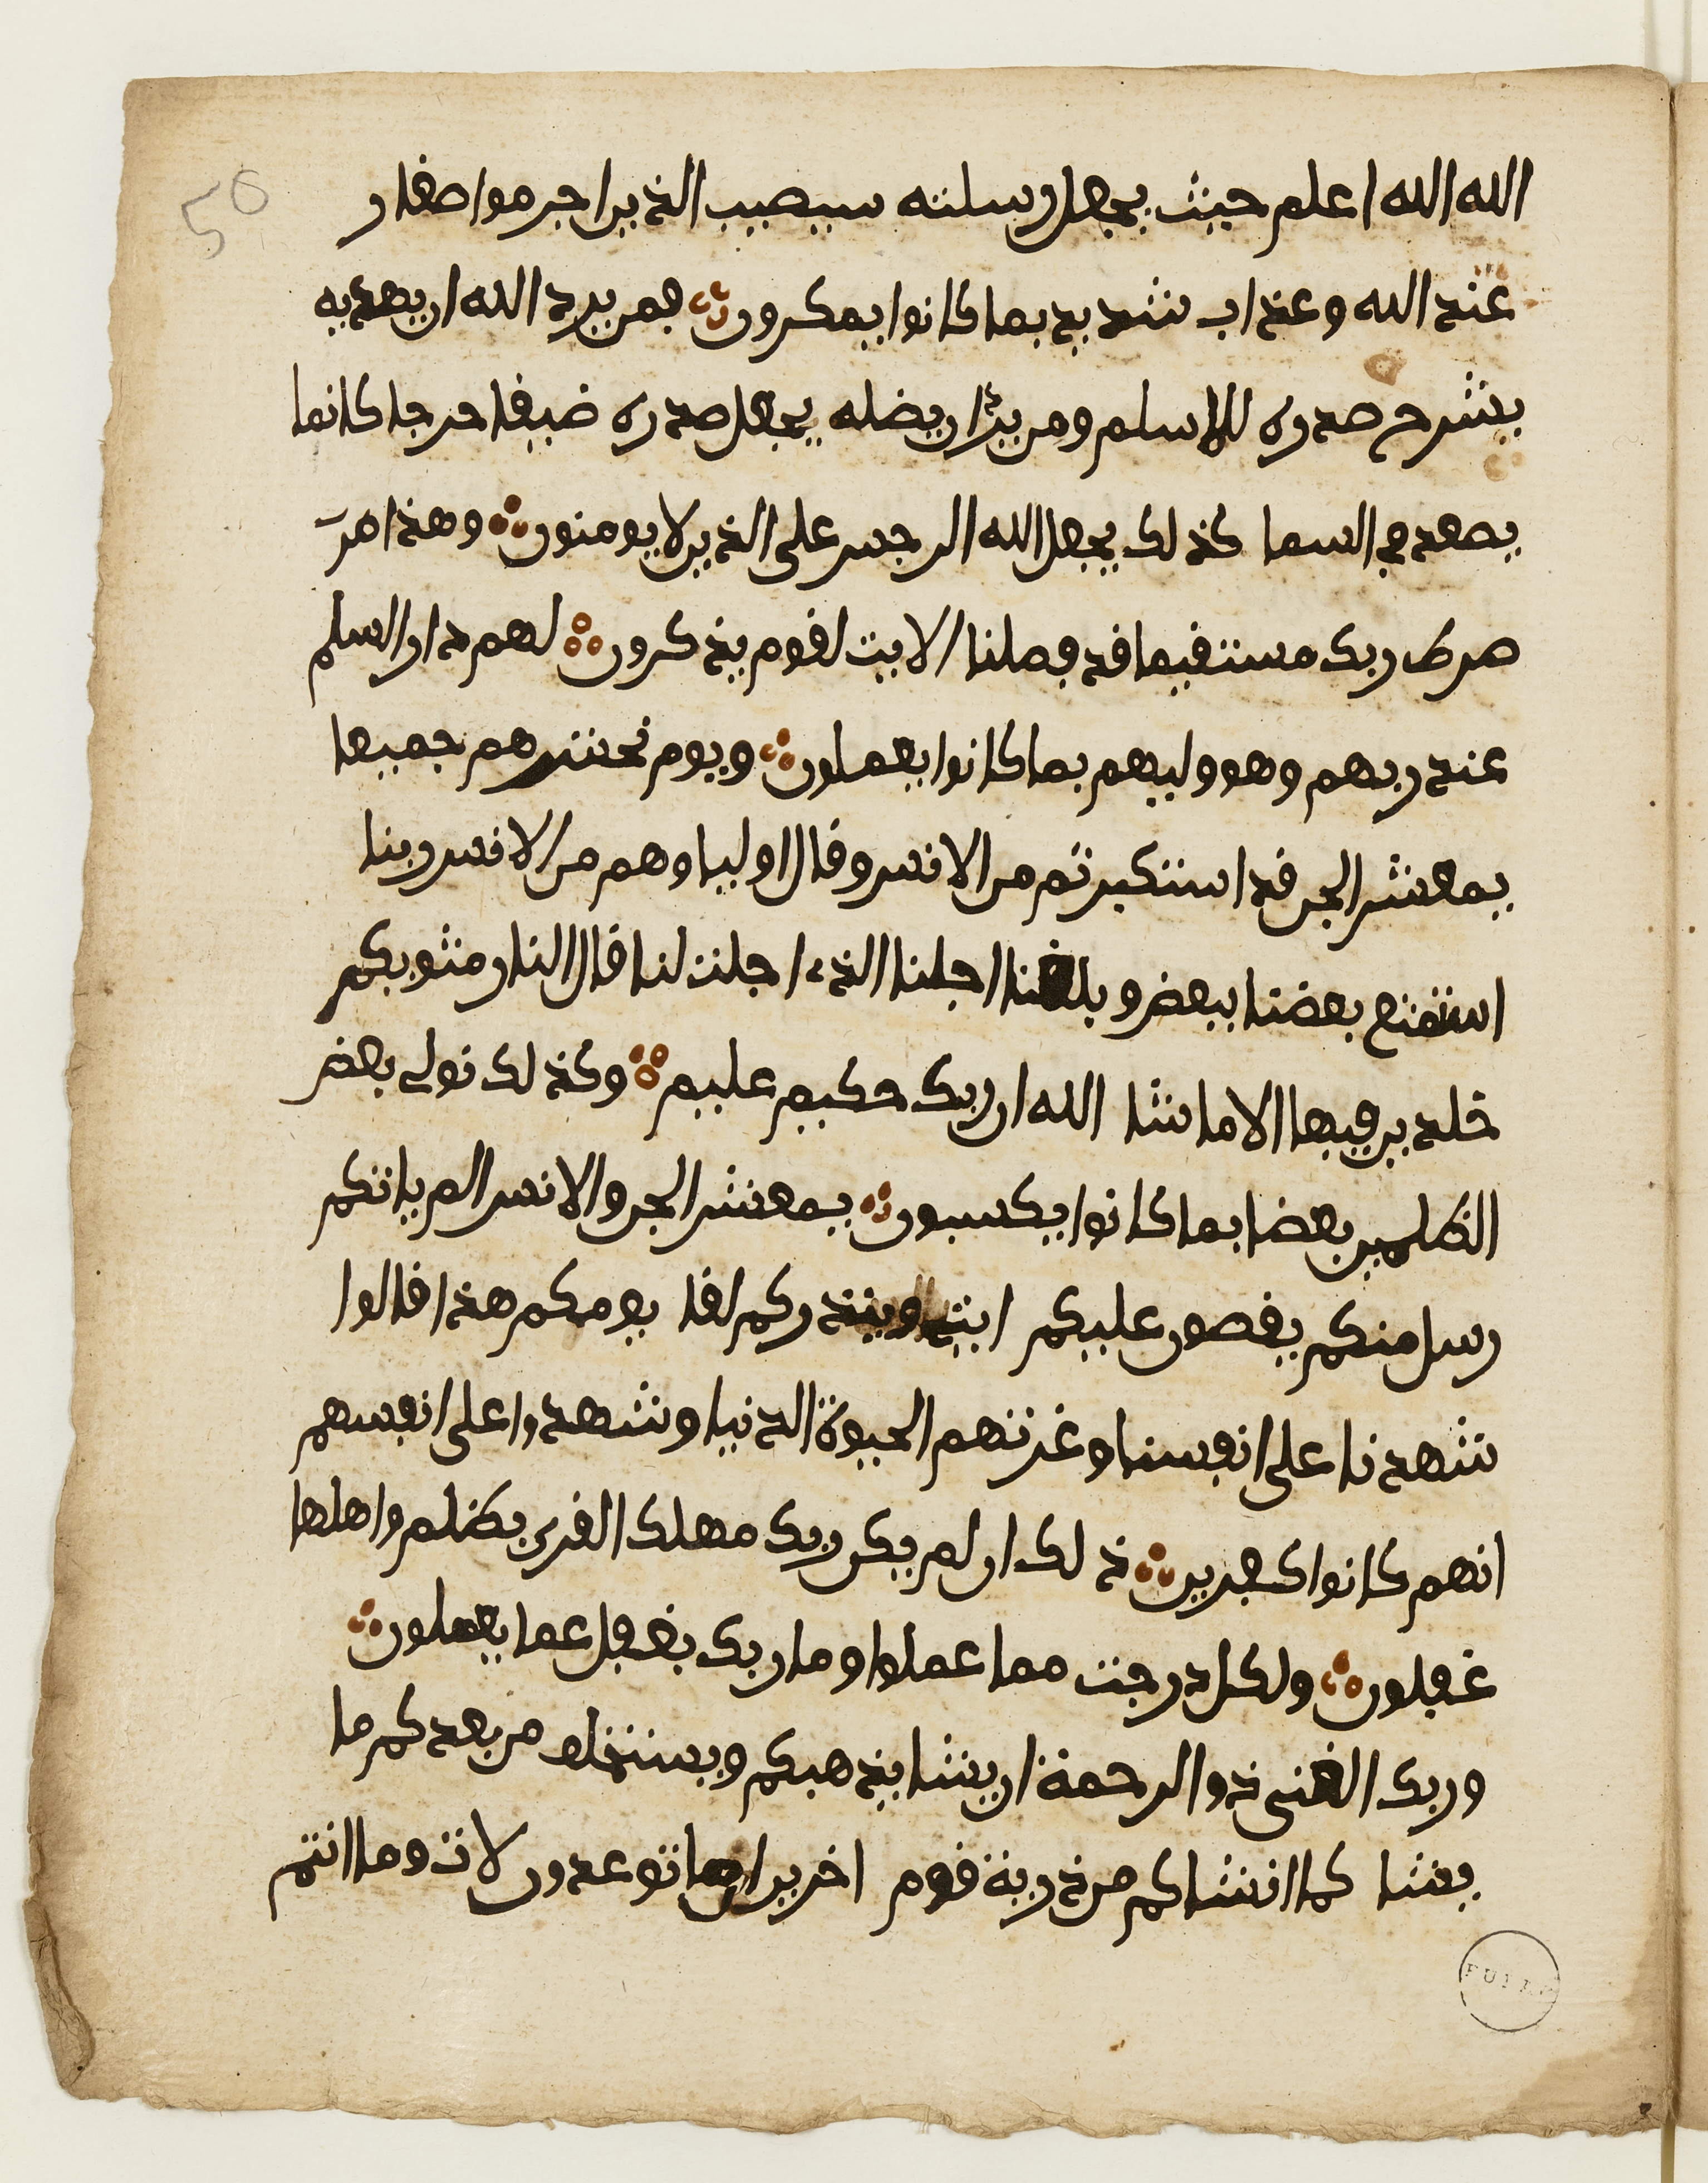 50
الله الله اعلم حيث يجعل رسلته سيصيب الذين اجرموا صغار
عند الله وعذاب شديد بما كانوا يمكرون فمن يرد الله ان يهديه
يشرح صدره للاسلم ومن يرد ان يضله يجعل صدره ضيقا حرجا كانما
يصعد في السما كذلك يجعل الله الرجس على الذين لا يومنون وهذا
صرط ربك مستقيما قد فصلنا الايت لقوم يذكرون لهم دار السلم
عند ربهم وهو وليهم بما كانوا يعملون ويوم نحشرهم جميعا
يمعشر الجن قد استكثرتم من الانس وقال اولياوهم من الانس ربنا
استمتع بعضنا ببعض وبلغنا اجلنا الذي اجلت لنا قال النار مثويكم
خلدين فيها الا ما شا الله ان ربك حكيم عليم وكذلك نولي بعض
الظلمين بعضا بما كانوا يكسبون يمعشر الجن والانس الم ياتكم
رسل منكم يقصون عليكم ايتي وينذرونكم لقا يومكم هذا قالوا
شهدنا على انفسنا وغرتهم الحيوة الدنيا وشهدوا على انفسهم
انهم كانوا كفرين ذلك ان لم يكن ربك مهلك القرى بظلم واهلها
غفلون ولكل درجت مما عملوا وما ربك بغفل عما يعملون
وربك الغني ذو الرحمة ان يشا يذهبكم ويستخلف من بعدكم ما
يشا كما انشاكم من ذرية قوم اخرين ان ما توعدون لات وما انتم